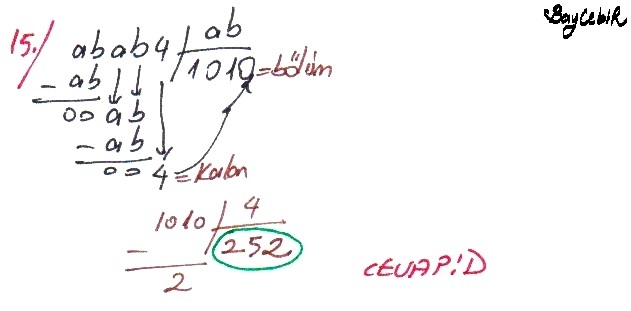 BayCebir
15.) ababu4 / ab
- ab 1010 = bölüm
00ab
- ab
004 = Kalan
1010 / 4
- 252
2
CEVAP: D